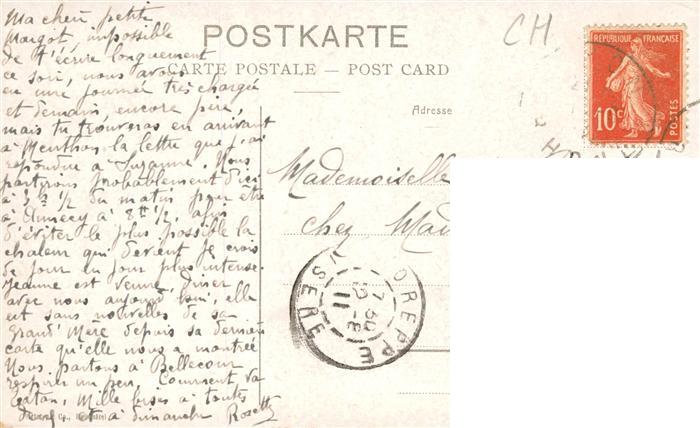 Ma chère petite
Margot, impossible
de t'écrire longuement
ce soir, nous avons
eu une journée très chargée
et demain encore pire,
mais tu trouveras en arrivant
à Menthon la lettre que j'ai
répondue à Suzanne. Nous
partirons probablement d'ici
à 5h ½ du matin pour être
à Annecy à 8h ½, afin
d'éviter le plus possible la
chaleur qui devient je crois
de jour en jour plus intense.
Jeanne est venue dîner
avec nous aujourd'hui, elle
est sans nouvelles de sa
Grand'Mère depuis sa dernière
carte qu'elle nous a montrée
Nous partons à Bellecour
respirer un peu. Comment va
Tatan, Mille bises à toutes
deux et à dimanche Rosette
POSTKARTE
CARTE POSTALE — POST CARD
Adresse
CH.
RÉPUBLIQUE FRANÇAISE
10c
POSTES
Mademoiselle
chez Mad
VOREPPE
7 30
12 -8
11
ISERE